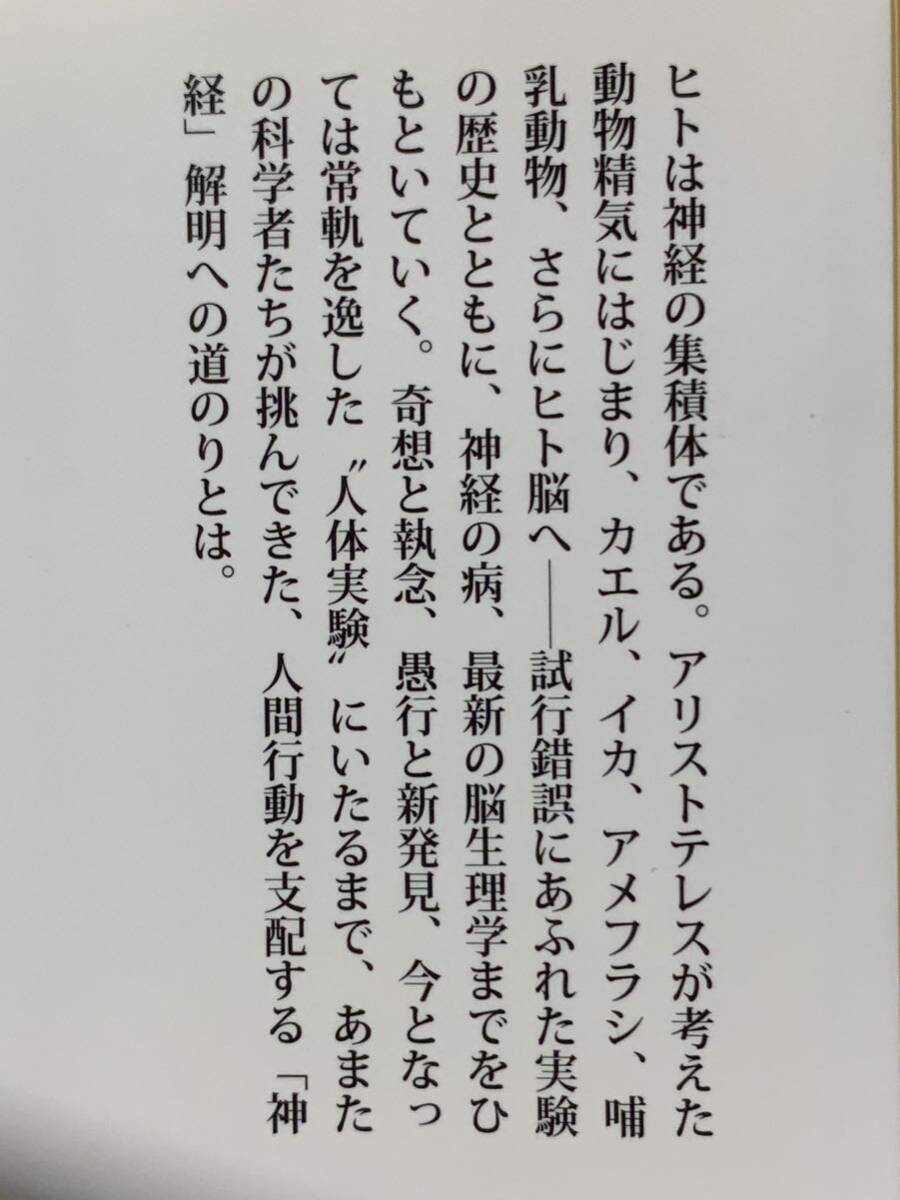 ヒトは神経の集積体である。アリストテレスが考えた
動物精気にはじまり、カエル、イカ、アメフラシ、哺
乳動物、さらにヒト脳へ――試行錯誤にあふれた実験
の歴史とともに、神経の病、最新の脳生理学までをひ
もといていく。奇想と執念、愚行と新発見、今となっ
ては常軌を逸した〝人体実験〟にいたるまで、あまた
の科学者たちが挑んできた、人間行動を支配する「神
経」解明への道のりとは。